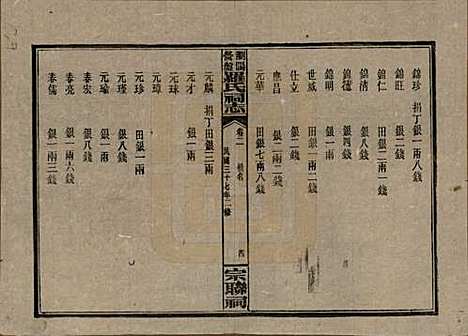 錦珍 捐丁銀一兩八錢
錦旺 銀二錢
錦仁 田銀二兩一錢
錦清 銀八錢
錦德 銀四錢
錦明 銀一兩
世威 田銀一兩二錢
仕立 銀二錢
應昌 銀二兩二錢
元華 田銀七兩八錢
瀏陽
羅氏祠志 卷二 捐名 民國三十七年二修 四 宗聯祠
元麟 捐丁田銀三兩
元才 銀二錢
元珠
元璋
元珍 田銀一兩
元瑾 銀一兩八錢
元瑜 銀一兩
春宏 銀八錢
春亮 銀一兩六錢
春儒 銀一兩三錢